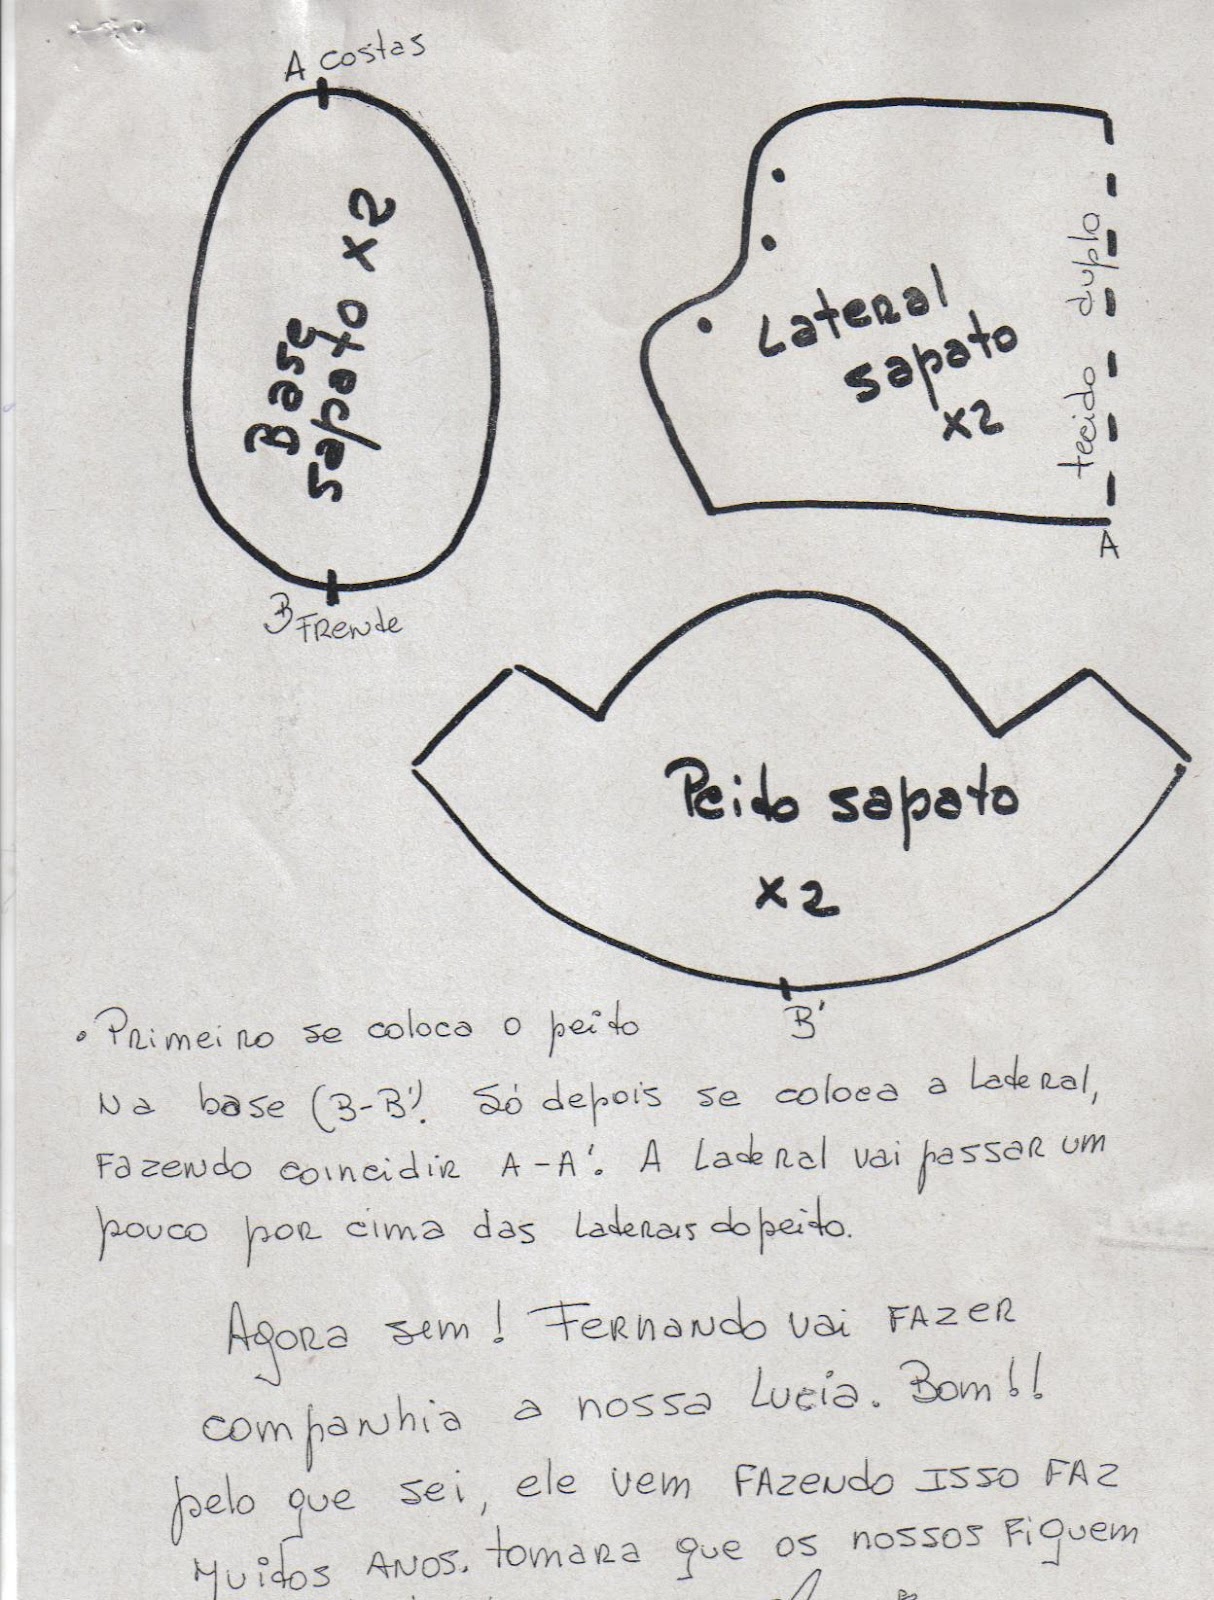 A costas
Base
sapato x2
B Frente
Lateral
sapato
x2
tecido duplo
A
Peito sapato
x2
B'
• Primeiro se coloca o peito
na base (B-B'). Só depois se coloca a lateral,
Fazendo coincidir A-A'. A lateral vai passar um
pouco por cima das laterais do peito.
Agora sem! Fernando vai FAZER
companhia a nossa Lucia. Bom!!
pelo que sei, ele vem FAZendo ISSO FAZ
Muitos ANOS. tomara que os nossos Fiquem